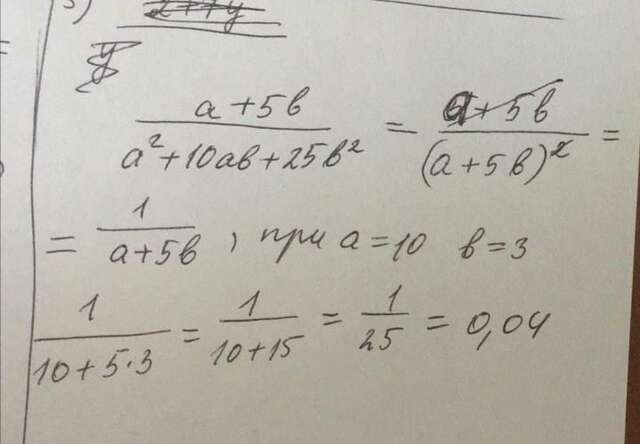 3)
a+5b/a²+10ab+25b² = a+5b/(a+5b)² =
= 1/a+5b, при a=10 b=3
1/10+5·3 = 1/10+15 = 1/25 = 0,04